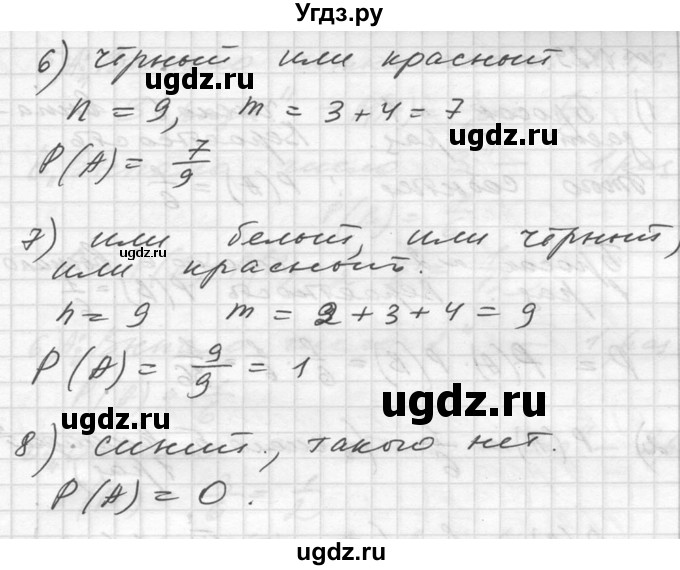 Угдз.ру
6) чёрный или красный
ugdz.ru
n = 9, m = 3 + 4 = 7
ugdz.ru
P(A) = 7/9
7) или белый, или чёрный,
ugdz.ru
или красный.
n = 9 m = 2 + 3 + 4 = 9
P(A) = 9/9 = 1
ugdz.ru
ugdz.ru
8) синий, такого нет.
P(A) = 0.
ugdz.ru
ugdz.ru